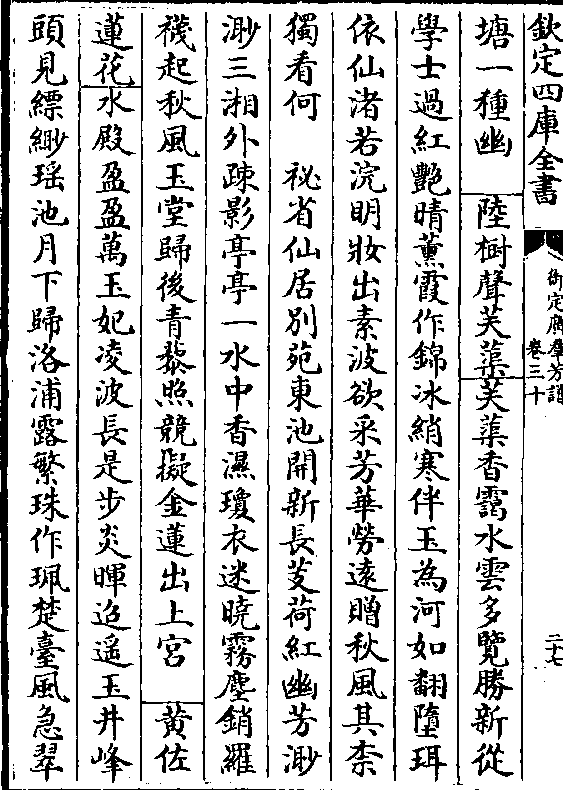 欽定四庫全書
御定廣羣芳譜
卷三十
二十七
塘一種幽 陸樹聲芙蕖芙蕖香靄水雲多覽勝新從
學士過紅艷晴薰霞作錦冰綃寒伴玉為河如翻墮珥
依仙渚若浣明妝出素波欲采芳華勞遠贈秋風其柰
獨看何 祕省仙居别苑東池開新長芰荷紅幽芳渺
渺三湘外疎影亭亭一水中香濕瓊衣迷曉霧塵銷羅
襪起秋風玉堂歸後青藜照競擬金蓮出上宮 黄佐
蓮花水殿盈盈萬玉妃凌波長是步炎暉迢遥玉井峰
頭見縹緲瑶池月下歸洛浦露繁珠作珮楚臺風急翠